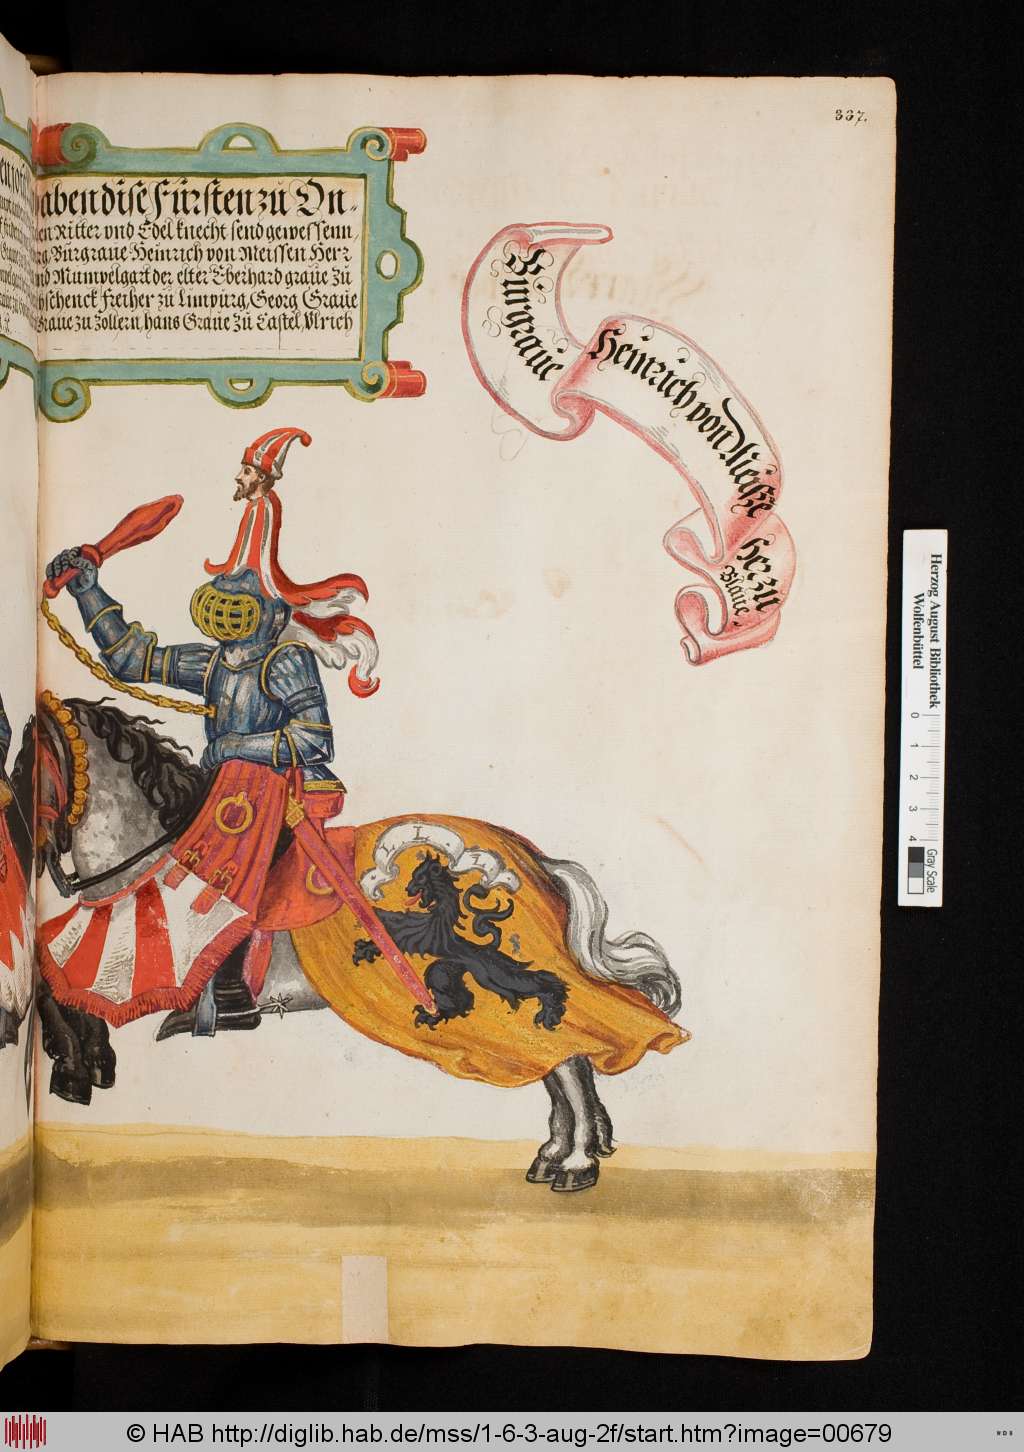 337.
abendise Fürsten zu On-
en Ritter vnd Edel knecht send gewessenn,
rg, Burgraue Heinrich von Meissen Herr
nd Mumpelgart der elter Eberhard graue zu
schenck Freiher zu Limpurg, Georg Graue
Graue zu Zollern, hans Graue zu Castel, Vlrich
Burgraue
Heinrich von Meissē
he zu
Blaue
L L L
Herzog August Bibliothek
Wolfenbüttel
0 1 2 3 4
Gray Scale
© HAB http://diglib.hab.de/mss/1-6-3-aug-2f/start.htm?image=00679